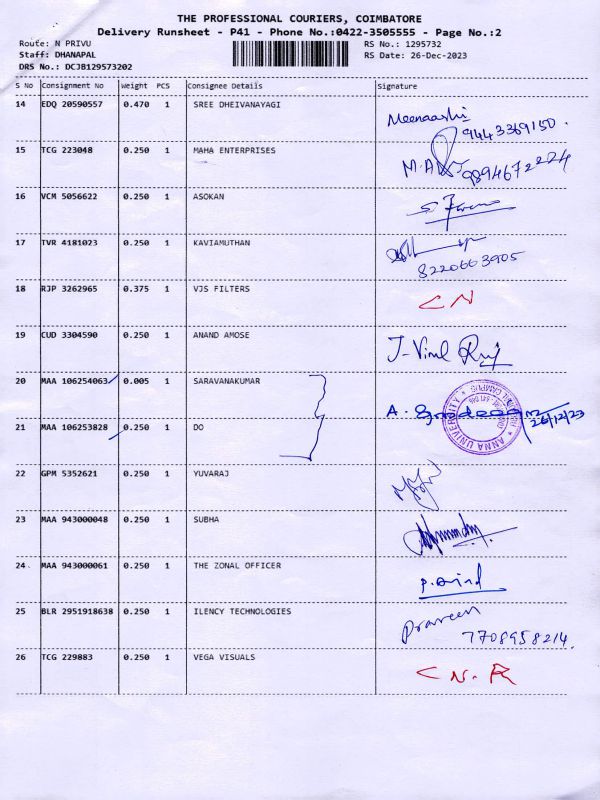 THE PROFESSIONAL COURIERS, COIMBATORE
Delivery Runsheet - P41 - Phone No.:0422-3505555 - Page No.:2
Route: N PRIVU
RS No.: 1295732
Staff: DHANAPAL
RS Date: 26-Dec-2023
DRS No.: DCJB129573202
S No Consignment No Weight PCS Consignee Details Signature
14 EDQ 20590557 0.470 1 SREE DHEIVANAYAGI
Meenaashi
9443369150.
15 TCG 223048 0.250 1 MAHA ENTERPRISES
9894672224
16 VCM 5056622 0.250 1 ASOKAN
17 TVR 4181023 0.250 1 KAVIAMUTHAN
8220663905
18 RJP 3262965 0.375 1 VJS FILTERS
CN
19 CUD 3304590 0.250 1 ANAND AMOSE
20 MAA 106254063 0.005 1 SARAVANAKUMAR
A.
26/12/23
ANNA UNIVERSITY
CAMPUS
21 MAA 106253828 0.250 1 DO
22 GPM 5352621 0.250 1 YUVARAJ
23 MAA 943000048 0.250 1 SUBHA
24 MAA 943000061 0.250 1 THE ZONAL OFFICER
25 BLR 2951918638 0.250 1 ILENCY TECHNOLOGIES
Praveen
7708958214.
26 TCG 229883 0.250 1 VEGA VISUALS
C N.R